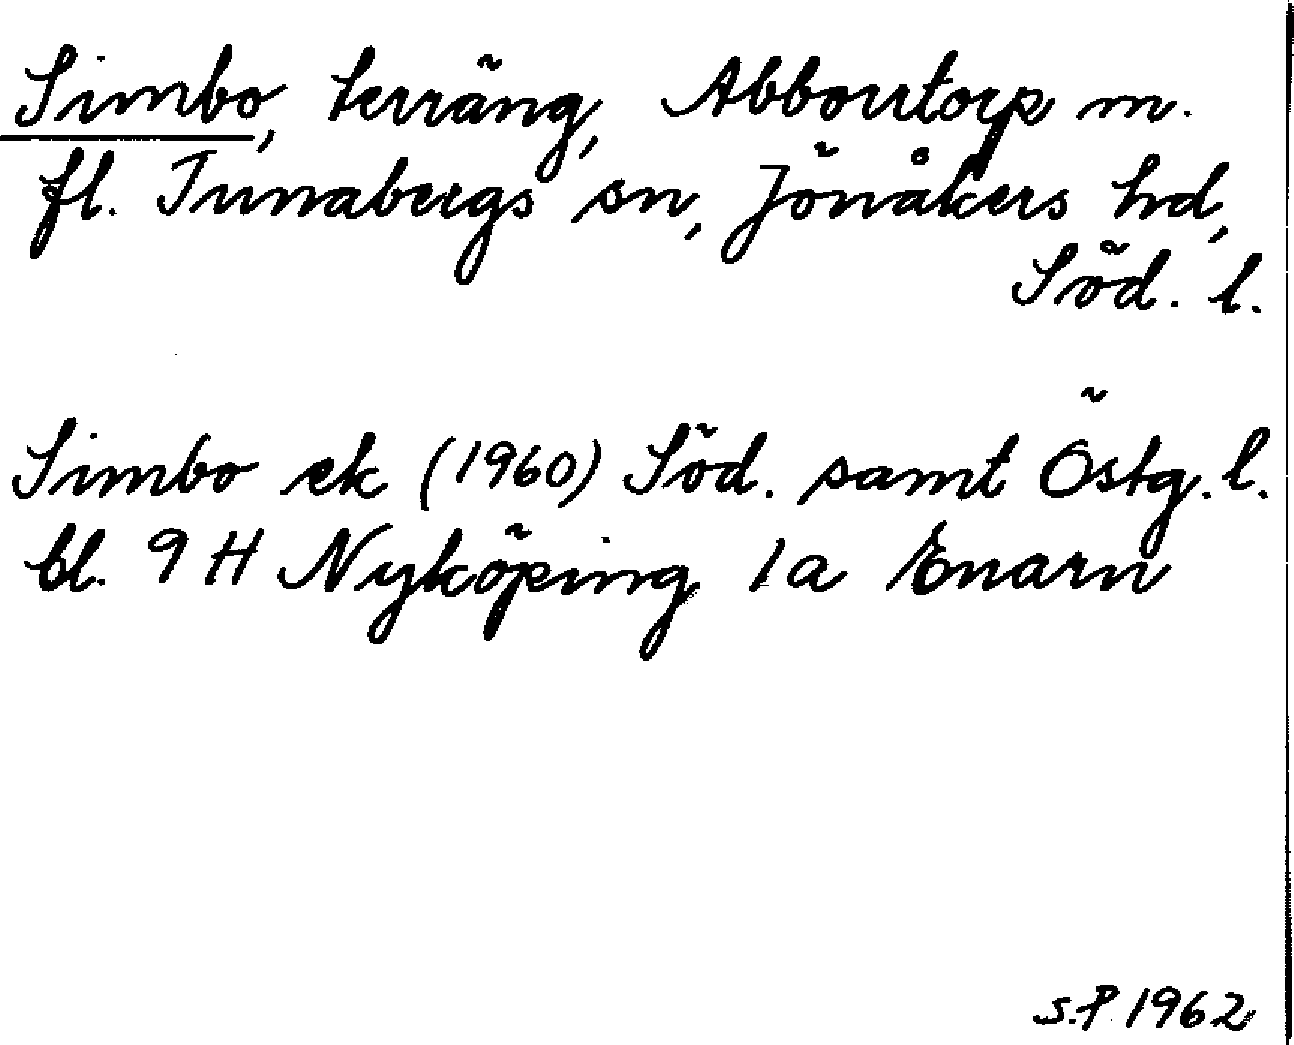 Simbo, terräng, Abborrtorp m.
fl. Tunabergs sn, Jönåkers hd,
Söd. l.
Simbo ek (1960) Söd. samt Östg. l.
bl. 9 H Nyköping 1a Enarn
S.P. 1962